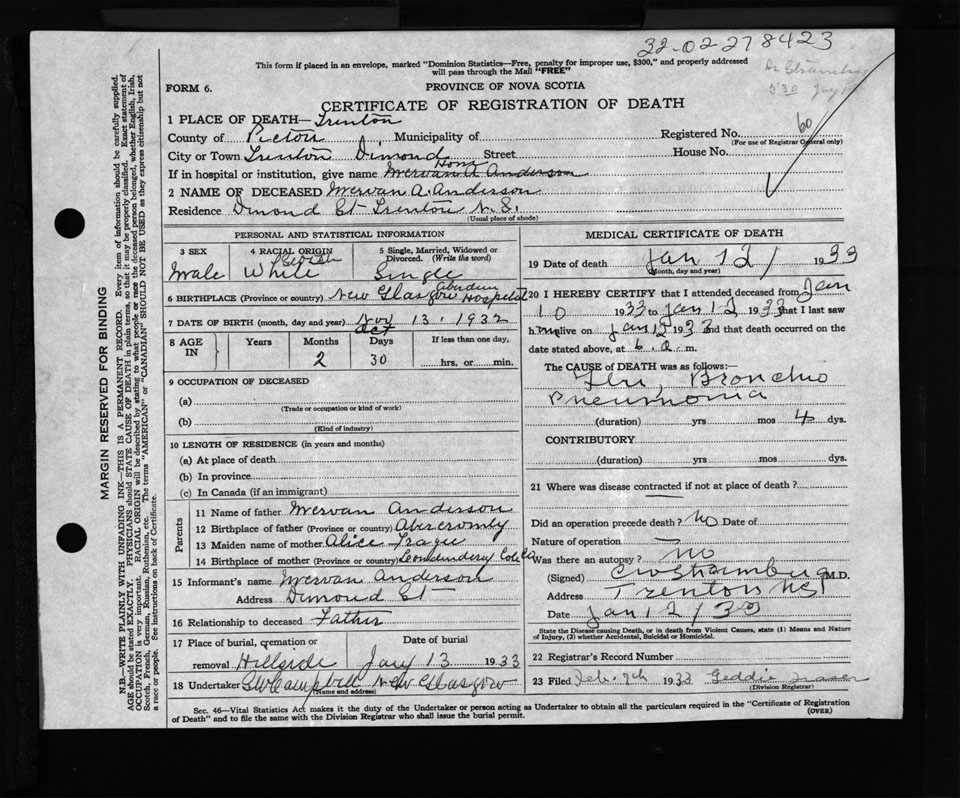 32-02-278423
This form if placed in an envelope, marked "Dominion Statistics—Free, penalty for improper use, $300," and properly addressed
will pass through the Mail "FREE"
FORM 6.
PROVINCE OF NOVA SCOTIA
CERTIFICATE OF REGISTRATION OF DEATH
1 PLACE OF DEATH—Trenton
County of Pictou, Municipality of
Registered No. 60
(For use of Registrar General only)
City or Town Trenton Dimond Street House No.
If in hospital or institution, give name Home Mervan A Anderson
2 NAME OF DECEASED Mervan A. Anderson
Residence Dimond St Trenton N.S.
(Usual place of abode)
PERSONAL AND STATISTICAL INFORMATION
3 SEX
Male
4 RACIAL ORIGIN
White
5 Single, Married, Widowed or
Divorced. (Write the word)
Single
6 BIRTHPLACE (Province or country) New Glasgow Aberdeen Hospital
7 DATE OF BIRTH (month, day and year) Nov Oct 13. 1932
8 AGE IN
Years
Months 2
Days 30
If less than one day,
hrs. or min.
9 OCCUPATION OF DECEASED
(a)
(Trade or occupation or kind of work)
(b)
(Kind of industry)
10 LENGTH OF RESIDENCE (in years and months)
(a) At place of death
(b) In province
(c) In Canada (if an immigrant)
Parents
11 Name of father Mervan Anderson
12 Birthplace of father (Province or country) Abercromby
13 Maiden name of mother Alice
14 Birthplace of mother (Province or country) Londonderry Col Co
15 Informant's name Mervan Anderson
Address Dimond St
16 Relationship to deceased Father
17 Place of burial, cremation or
removal Hillside
Date of burial
Jany 13 1933
18 Undertaker G W Campbell New Glasgow
(Name and address)
MEDICAL CERTIFICATE OF DEATH
19 Date of death Jan 12/ 1933
(Month, day and year)
20 I HEREBY CERTIFY that I attended deceased from Jan
10 1933 to Jan 12 1933 that I last saw
h im alive on Jan 12 1933 and that death occurred on the
date stated above, at 6. a. m.
The CAUSE of DEATH was as follows:—
Flu, Broncho
Pneumonia
(duration) yrs mos 4 dys.
CONTRIBUTORY
(duration) yrs mos dys.
21 Where was disease contracted if not at place of death?
Did an operation precede death? No Date of
Nature of operation —
Was there an autopsy? No
(Signed) M.D.
Address Trenton NS
Date Jan 12/33
State the Disease causing Death, or in death from Violent Causes, state (1) Means and Nature
of Injury, (2) whether Accidental, Suicidal or Homicidal.
22 Registrar's Record Number
23 Filed Feb. 9th 1933 Geddie Fraser
(Division Registrar)
Sec. 46—Vital Statistics Act makes it the duty of the Undertaker or person acting as Undertaker to obtain all the particulars required in the "Certificate of Registration
of Death" and to file the same with the Division Registrar who shall issue the burial permit.
(OVER)
MARGIN RESERVED FOR BINDING
N.B.—WRITE PLAINLY WITH UNFADING INK—THIS IS A PERMANENT RECORD. Every item of information should be carefully supplied.
AGE should be stated EXACTLY. PHYSICIANS should STATE CAUSE OF DEATH in plain terms, so that it may be properly classified. Exact statement of
OCCUPATION is very important. RACIAL ORIGIN will be described by stating to what people or race the deceased person belonged, whether English, Irish,
Scotch, French, German, Russian, Ruthenian, etc. The terms "AMERICAN" or "CANADIAN" SHOULD NOT BE USED as they express citizenship but not
a race or people. See instructions on back of Certificate.